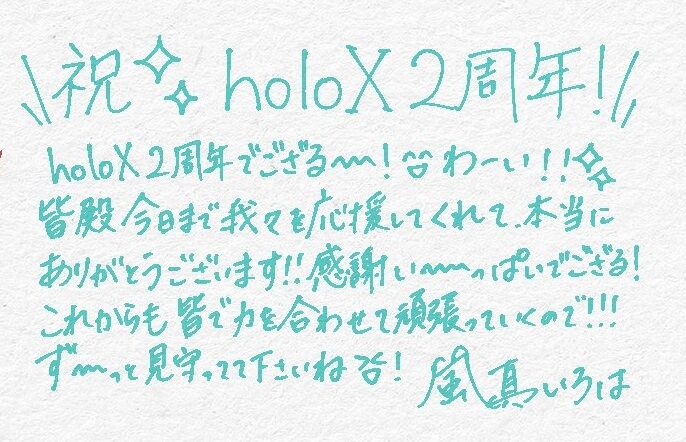 祝 holoX 2周年!
holoX 2周年でござる〜〜!わーい!!
皆殿 今日まで我々を応援してくれて、本当に
ありがとうございます!!感謝い〜〜っぱいでござる!
これからも皆で力を合わせて頑張っていくので!!!
ず〜〜っと見守ってて下さいね!
風真いろは